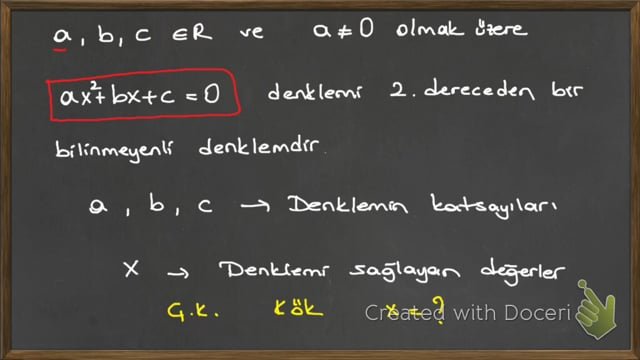 a, b, c ∈ R ve a ≠ 0 olmak üzere
ax²+bx+c = 0 denklemi 2. dereceden bir
bilinmeyenli denklemdir.
a, b, c → Denklemin katsayıları
x → Denklemi sağlayan değerler
Ç.K. Kök x = ?
Created with Doceri